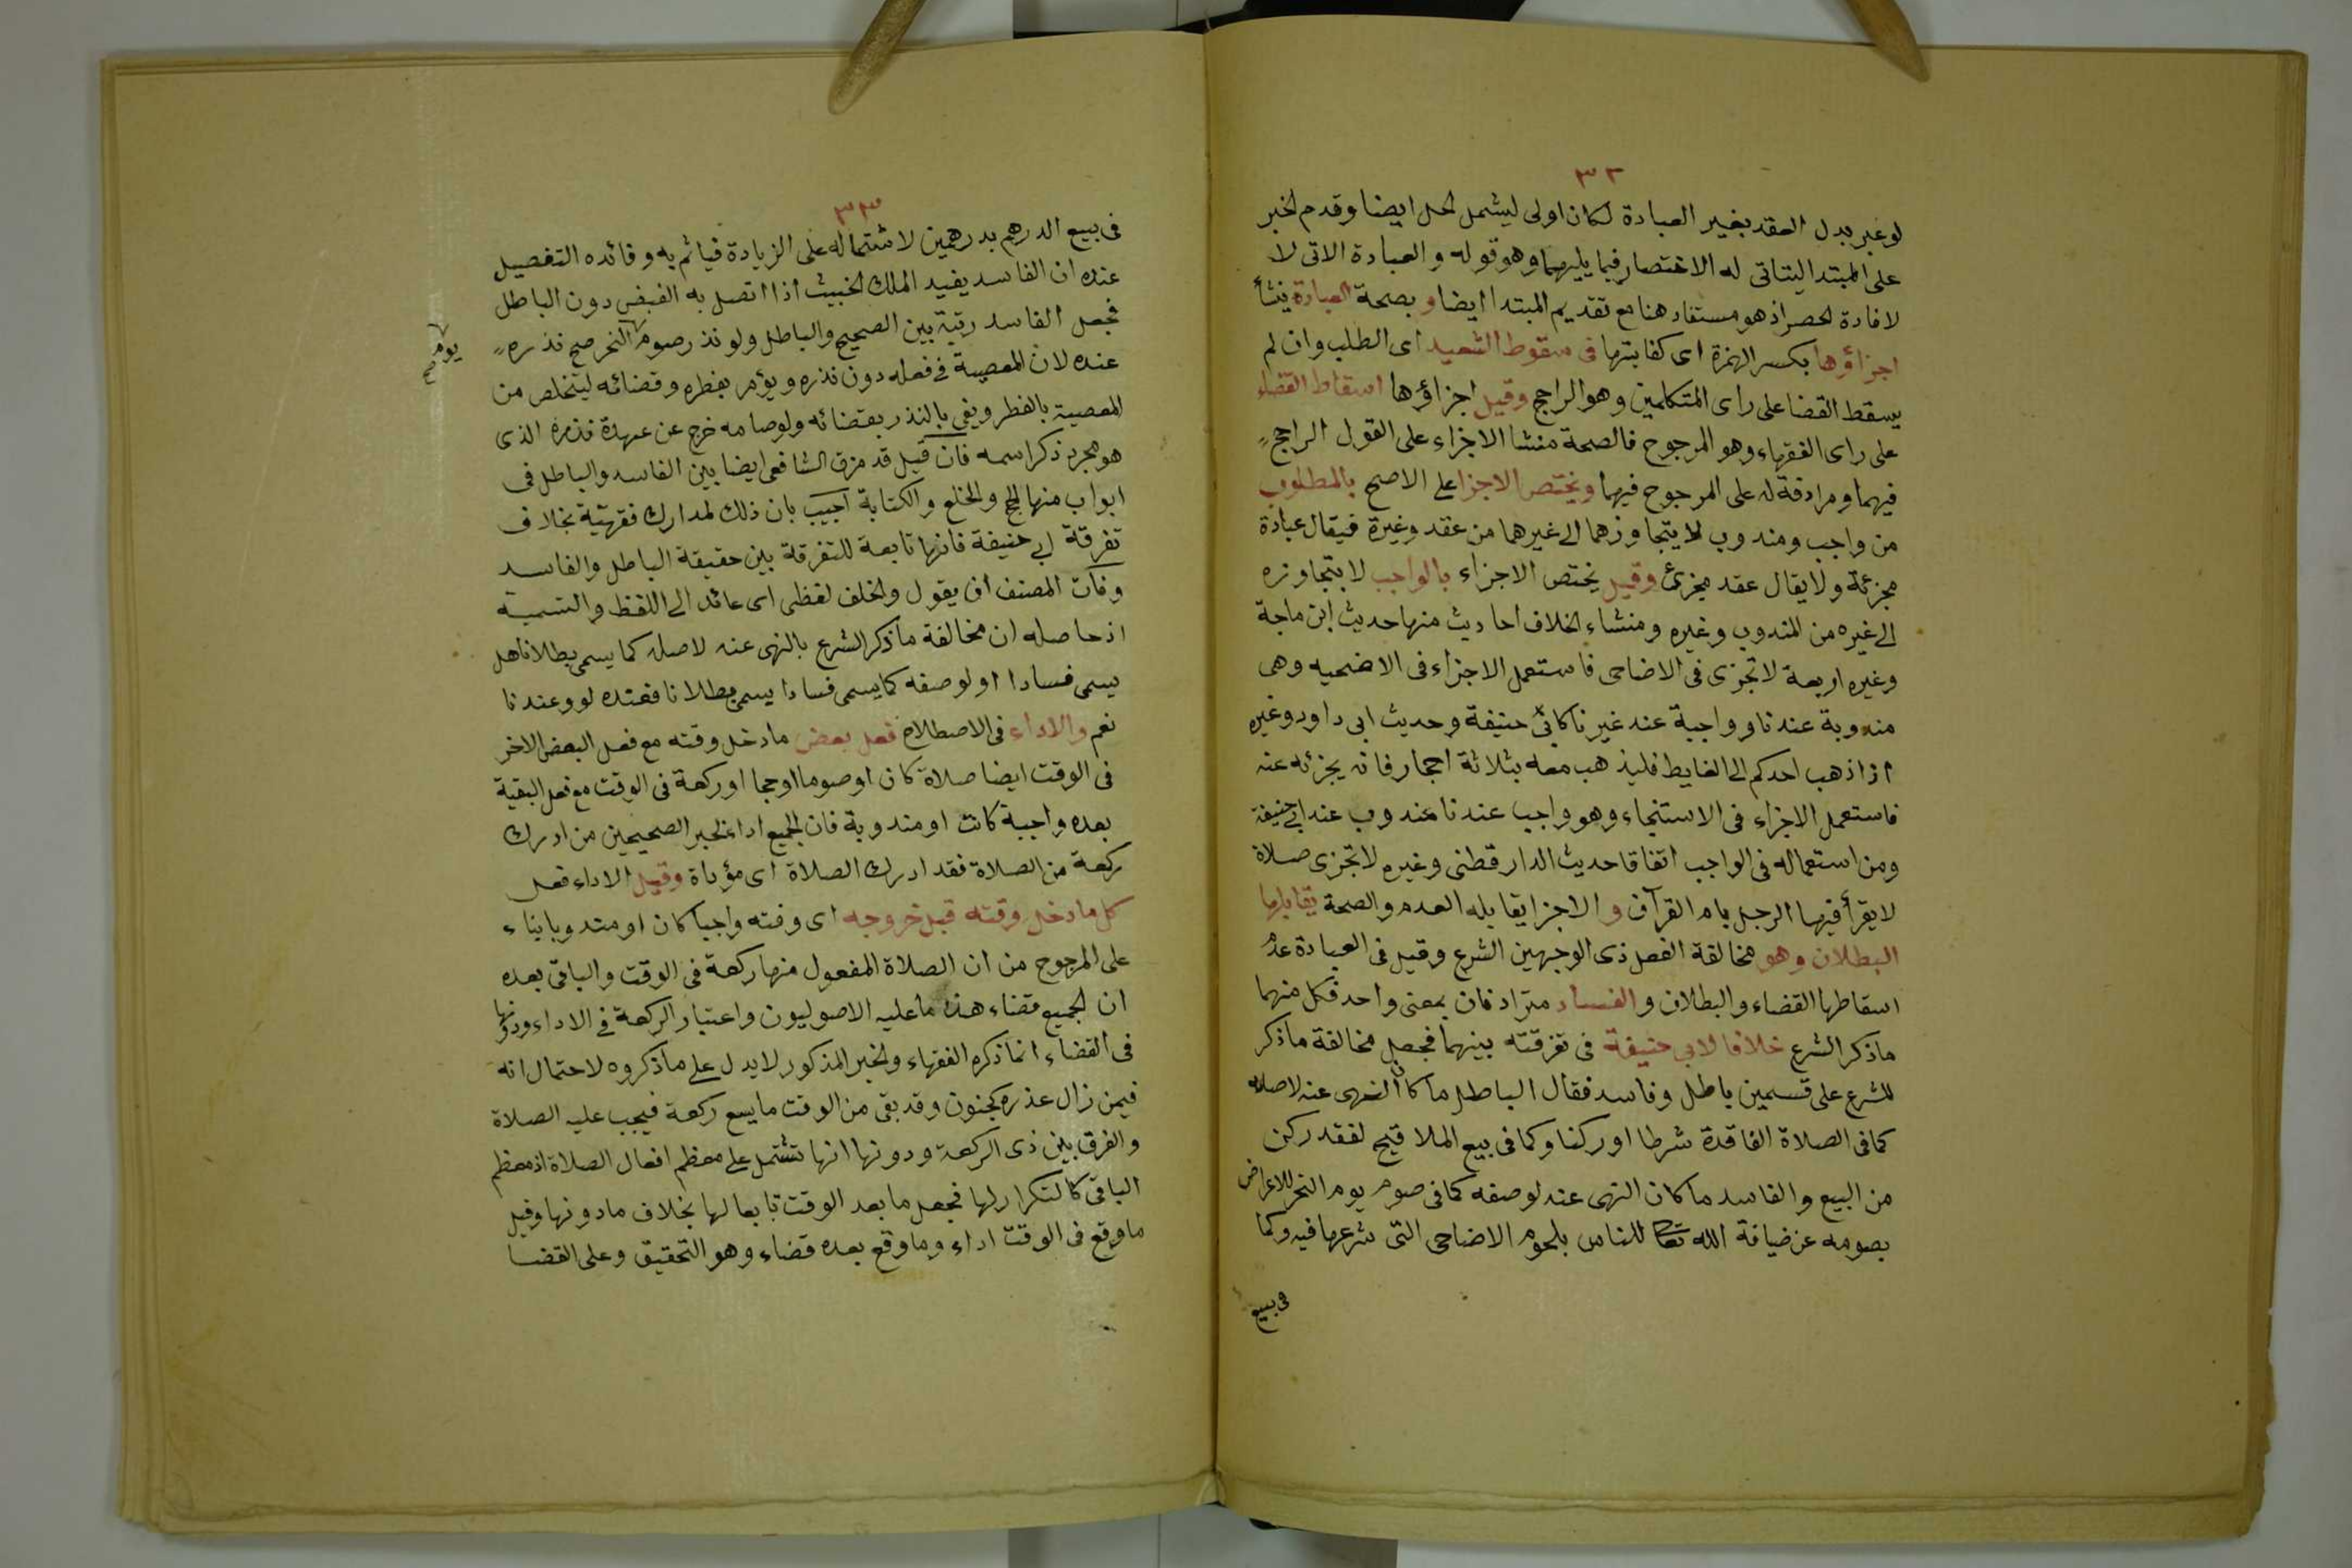 ٣٢
لو عبر بدل العقد بغير العبادة لكان اولى ليشمل لحل ايضا وقدم لخبر
على المبتدا ليتاتى له الاختصار فيما يليهما وهو قوله والعبادة الاتى لا
لافادة لحصر اذ هو مستفاد هنا مع تقديم المبتدا ايضا و بصحة العبادة ينشأ
اجزاؤها بكسر الهمزة اى كفايتها فى سقوط التعبد اى الطلب وان لم
يسقط القضا على راى المتكلمين وهو الراجح وقيل اجزاؤها اسقاط القضاء
على راى الفقهاء وهو المرجوح فالصحة منشا الاجزاء على القول الراجح
فيهما ومرادفة له على المرجوح فيهما ويختص الاجزا على الاصح بالمطلوب
من واجب ومندوب لا يتجاوزهما الى غيرهما من عقد وغيره فيقال عبادة
مجزئة ولا يقال عقد مجزئ وقيل يختص الاجزاء بالواجب لا يتجاوزه
الى غيره من المندوب وغيره ومنشاء لخلاف احاديث منها حديث ابن ماجة
وغيره اربعة لا تجزى فى الاضاحى فاستعمل الاجزاء فى الاضحيه وهى
مندوبة عندنا وواجبة عند غيرنا كابى حنيفة وحديث ابى داود وغيره
اذا ذهب احدكم الى الغايط فليذهب معه بثلاثة احجار فانه يجزئه عنه
فاستعمل الاجزاء فى الاستنجاء وهو واجب عندنا مندوب عند ابى حنيفة
ومن استعماله فى الواجب اتفاقا حديث الدارقطنى وغيره لا تجزى صلاة
لا يقرأ فيها الرجل بام القرآن و الاجزا يقابله العدم والصحة يقابلها
البطلان وهو مخالفة الفعل ذى الوجهين الشرع وقيل فى العبادة عدم
اسقاطها القضاء والبطلان و الفساد مترادفان بمعنى واحد فكل منهما
ماذكر الشرع خلافا لابى حنيفة فى تفرقته بينهما فجعل مخالفة ماذكر
للشرع على قسمين باطل وفاسد فقال الباطل ما كان النهى عنه لاصله
كما فى الصلاة الفاقدة شرطا او ركنا وكما فى بيع الملاقيح لفقد ركن
من البيع والفاسد ما كان النهى عنه لوصفه كما فى صوم يوم النحر للاعراض
بصومه عن ضيافة الله تعا للناس بلحوم الاضاحى التى شرعها فيه وكما
فى بيع
٣٣
فى بيع الدرهم بدرهمين لاشتماله على الزيادة فيأثم به وفائده التفصيل
عنده ان الفاسد يفيد الملك لخبيث اذا اتصل به القبض دون الباطل
فجعل الفاسد رتبة بين الصحيح والباطل ولو نذر صوم النحر صح نذره
يوم صح
عنده لان المعصية فى فعله دون نذره ويؤمر بفطره وقضائه ليتخلص من
المعصية بالفطر ويفى بالنذر بقضائه ولو صامه خرج عن عهدة نذره الذى
هو مجرد ذكر اسمه فان قيل قد فرق الشافعى ايضا بين الفاسد والباطل فى
ابواب منها لحج ولخلع والكتابة اجيب بان ذلك لمدارك فقهية بخلاف
تفرقة ابى حنيفة فانها تابعة للتفرقة بين حقيقة الباطل والفاسد
وفات المصنف ان يقول ولخلف لفظى اى عائد الى اللفظ والتسمية
اذ حاصله ان مخالفة ماذكر الشرع بالنهى عنه لاصله كما يسمى بطلانا هل
يسمى فسادا او لوصفه كما يسمى فسادا يسمى بطلانا فعنده لو وعندنا
نعم والاداء فى الاصطلاح فعل بعض مادخل وقته مع فعل البعض الاخر
فى الوقت ايضا صلاة كان او صوما او حجا او ركعة فى الوقت مع فعل البقية
بعده واجبة كانت او مندوبة فان لجميع اداء لخبر الصحيحين من ادرك
ركعة من الصلاة فقد ادرك الصلاة اى مؤداة وقيل الاداء فعل
كل مادخل وقته قبل خروجه اى وقته واجبا كان او مندوبا بناء
على المرجوح من ان الصلاة المفعول منها ركعة فى الوقت والباقى بعده
ان لجميع قضاء هذا ما عليه الاصوليون واعتبار الركعة فى الاداء ودونها
فى القضاء انما ذكره الفقهاء ولخبر المذكور لا يدل على ما ذكروه لاحتمال انه
فيمن زال عذره كجنون وقد بقى من الوقت ما يسع ركعة فيجب عليه الصلاة
والفرق بين ذى الركعة ودونها انها تشتمل على معظم افعال الصلاة اذ معظم
الباقى كالتكرار لها فجعل ما بعد الوقت تابعا لها بخلاف مادونها وقيل
ما وقع فى الوقت اداء وما وقع بعده قضاء وهو التحقيق وعلى القضا